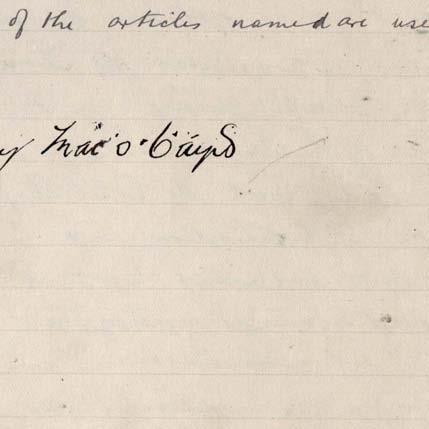 of the articles named are use
Mac Ḃáird